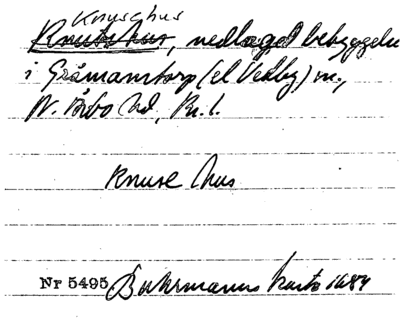 Knuse hus
Knuts hus, nedlagd bebyggelse
i Gråmanstorp (el Vedby) sn.,
N. Åsbo hd, Kr. l.
Knuse hus
Nr 5495 Buhrmanns karta 1684